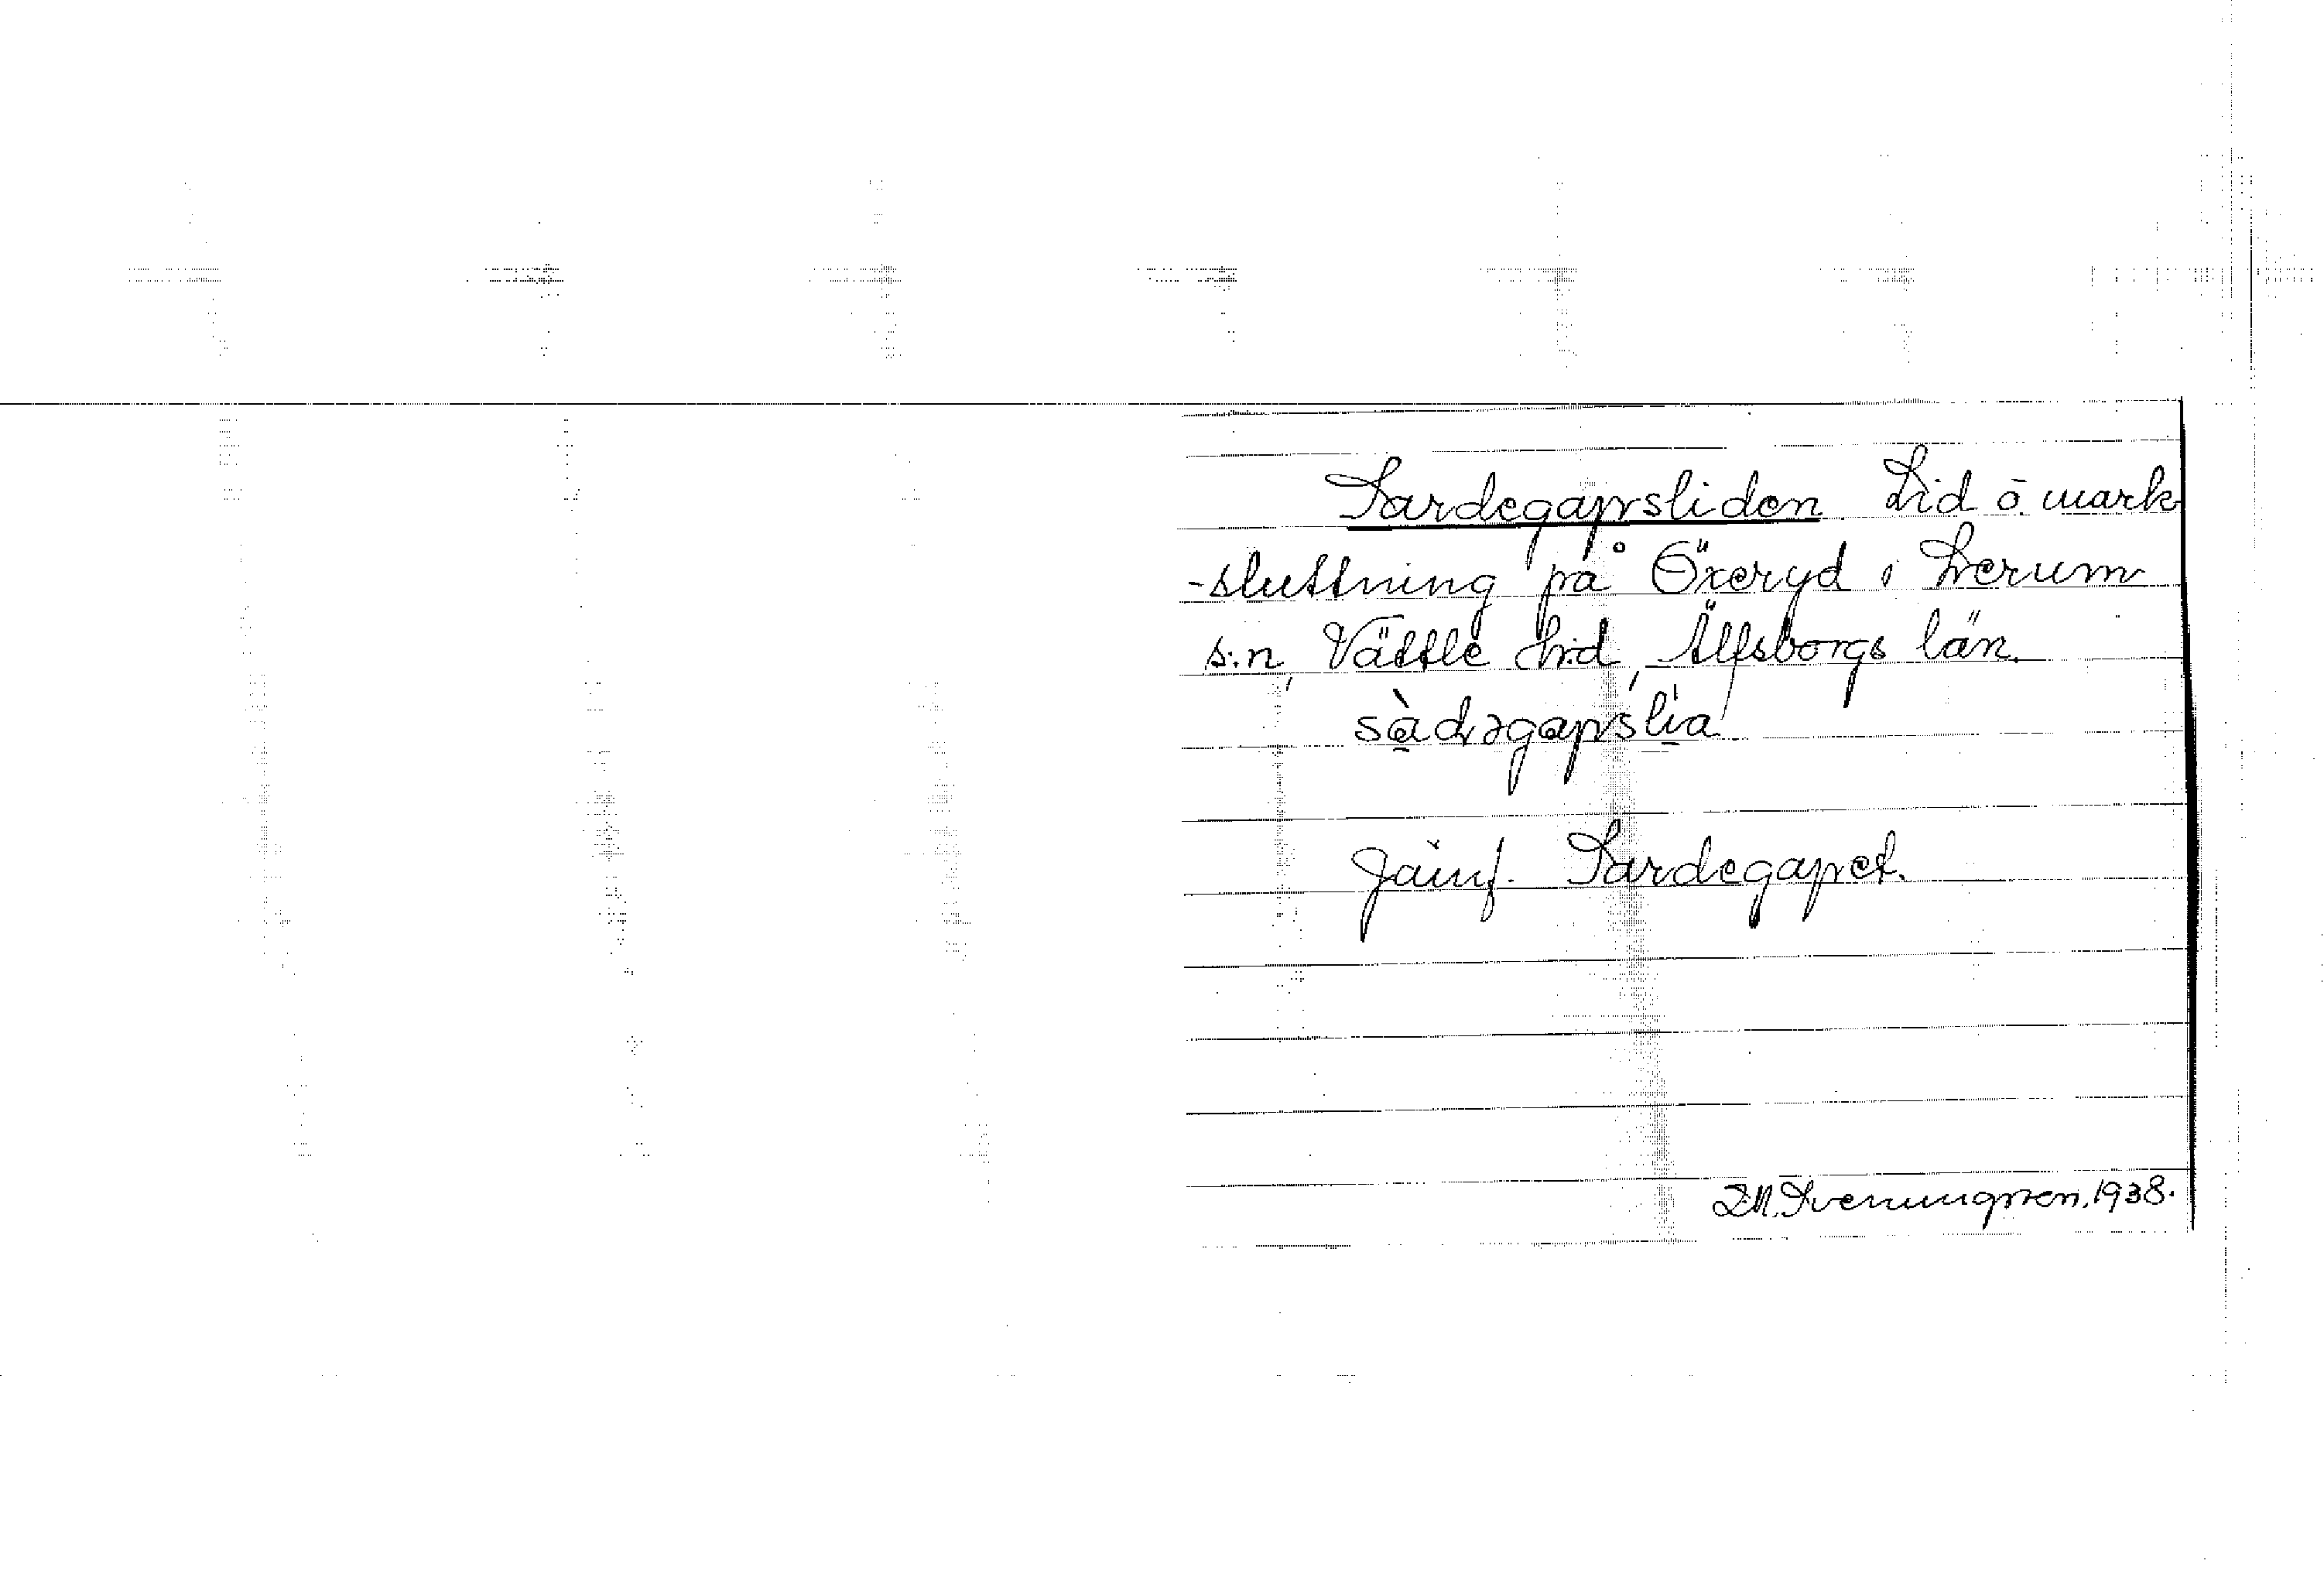 Sardegapsliden Lid o mark
-sluttning på Öxeryd i Lerum
s:n, Vättle hd, Älfsborgs län.
sàdəgapslia
Jämf. Sardegapet.
D.M. Svenungsson. 1938.